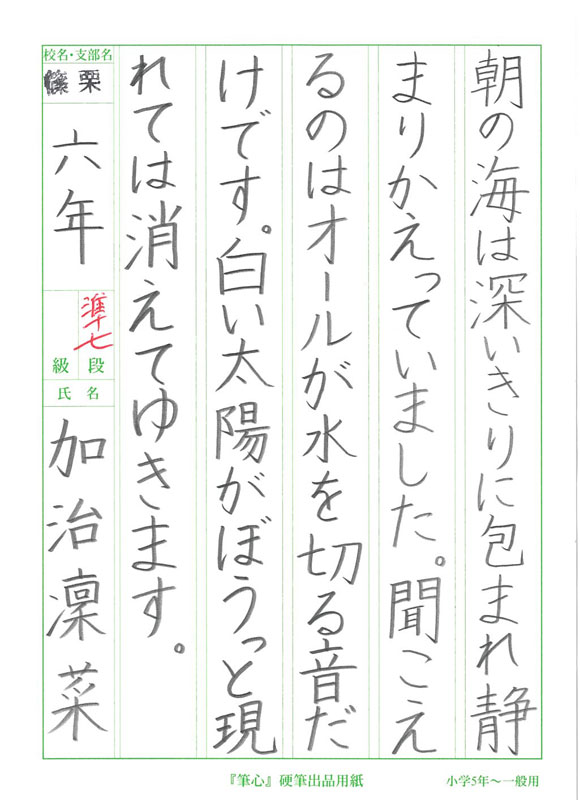 朝の海は深いきりに包まれ静
まりかえっていました。聞こえ
るのはオールが水を切る音だ
けです。白い太陽がぼうっと現
れては消えてゆきます。
校名・支部名
篠栗
六年
準七
級 段
氏 名
加治凜菜
『筆心』硬筆出品用紙
小学5年〜一般用